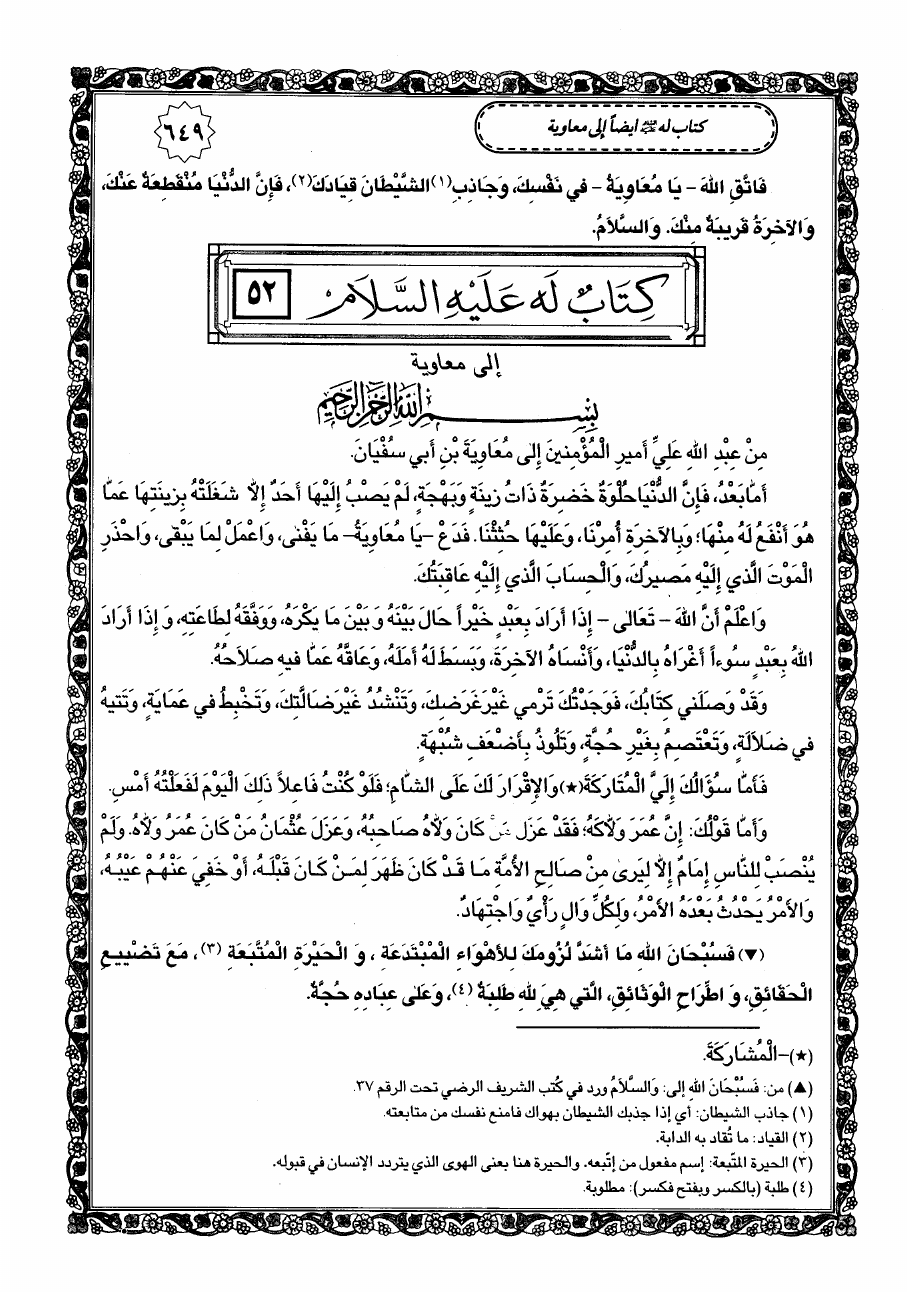 كتاب له عليه السلام ايضاً إلى معاوية
٦٤٩
فَاتَّقِ اللهَ - يَا مُعَاوِيَةُ - في نَفْسِكَ، وَجَاذِبِ(١) الشَّيْطَانَ قِيَادَكَ(٢)، فَإِنَّ الدُّنْيَا مُنْقَطِعَةٌ عَنْكَ،
وَالآخِرَةُ قَرِيبَةٌ مِنْكَ. وَالسَّلَامُ.
كِتَابٌ لَه عَلَيْهِ السَّلَام ٥٢
إلى معاوية
بِسْمِ اللهِ الرَّحْمٰنِ الرَّحِيمِ
مِنْ عَبْدِ اللهِ عَلِيٍّ أَمِيرِ الْمُؤْمِنينَ إِلى مُعَاوِيَةَ بْنِ أَبي سُفْيَانَ.
أَمَّا بَعْدُ، فَإِنَّ الدُّنْيَا حُلْوَةٌ خَضِرَةٌ ذَاتُ زِينَةٍ وَبَهْجَةٍ، لَمْ يَصْبُ إِلَيْهَا أَحَدٌ إِلَّا شَغَلَتْهُ بِزِينَتِهَا عَمَّا
هُوَ أَنْفَعُ لَهُ مِنْهَا؛ وَبِالآخِرَةِ أُمِرْنَا، وَعَلَيْهَا حُثِثْنَا. فَدَعْ -يَا مُعَاوِيَةُ- مَا يَفْنى، وَاعْمَلْ لِمَا يَبْقى، وَاحْذَرِ
الْمَوْتَ الَّذي إِلَيْهِ مَصيرُكَ، وَالْحِسَابَ الَّذي إِلَيْهِ عَاقِبَتُكَ.
وَاعْلَمْ أَنَّ اللهَ - تَعَالى - إِذَا أَرَادَ بِعَبْدٍ خَيْراً حَالَ بَيْنَهُ وَبَيْنَ مَا يَكْرَهُ، وَوَفَّقَهُ لِطَاعَتِهِ، وَإِذَا أَرَادَ
اللهُ بِعَبْدٍ سُوءاً أَغْرَاهُ بِالدُّنْيَا، وَأَنْسَاهُ الآخِرَةَ، وَبَسَطَ لَهُ أَمَلَهُ، وَعَاقَّهُ عَمَّا فيهِ صَلَاحُهُ.
وَقَدْ وَصَلَني كِتَابُكَ، فَوَجَدْتُكَ تَرْمي غَيْرَ غَرَضِكَ، وَتَنْشُدُ غَيْرَ ضَالَّتِكَ، وَتَخْبِطُ في عَمَايَةٍ، وَتَتيهُ
في ضَلَالَةٍ، وَتَعْتَصِمُ بِغَيْرِ حُجَّةٍ، وَتَلُوذُ بِأَضْعَفِ شُبْهَةٍ.
فَأَمَّا سُؤَالُكَ إِلَيَّ الْمُتَارَكَةَ(★) وَالإِقْرَارَ لَكَ عَلَى الشَّامِ؛ فَلَوْ كُنْتُ فَاعِلاً ذَلِكَ الْيَوْمَ لَفَعَلْتُهُ أَمْسِ.
وَأَمَّا قَوْلُكَ: إِنَّ عُمَرَ وَلَّاكَهُ؛ فَقَدْ عَزَلَ مَنْ كَانَ وَلَّاهُ صَاحِبُهُ، وَعَزَلَ عُثْمَانُ مَنْ كَانَ عُمَرُ وَلَّاهُ. وَلَمْ
يُنْصَبْ لِلنَّاسِ إِمَامٌ إِلَّا لِيَرى مِنْ صَالِحِ الأُمَّةِ مَا قَدْ كَانَ ظَهَرَ لِمَنْ كَانَ قَبْلَهُ، أَوْ خَفِيَ عَنْهُمْ عَيْبُهُ،
وَالأَمْرُ يَحْدُثُ بَعْدَهُ الأَمْرُ، وَلِكُلِّ وَالٍ رَأْيٌ وَاجْتِهَادٌ.
(▼) فَسُبْحَانَ اللهِ مَا أَشَدَّ لُزُومَكَ لِلأَهْوَاءِ الْمُبْتَدَعَةِ ، وَ الْحَيْرَةِ الْمُتَّبَعَةِ (٣)، مَعَ تَضْييعِ
الْحَقَائِقِ، وَ اطِّرَاحِ الْوَثَائِقِ، الَّتي هِيَ لِلهِ طِلْبَةٌ (٤)، وَعَلى عِبَادِهِ حُجَّةٌ.
(★)-الْمُشَارَكَةَ.
(▲) من: فَسُبْحَانَ اللهِ إلى: وَالسَّلَامُ ورد في كُتب الشريف الرضي تحت الرقم ٣٧.
(١) جاذب الشيطان: أي إذا جذبك الشيطان بهواك فامنع نفسك من متابعته.
(٢) القياد: ما تُقاد به الدابة.
(٣) الحيرة المتّبعة: إسم مفعول من إتّبعه. والحيرة هنا بعنى الهوى الذي يتردد الإنسان في قبوله.
(٤) طلبة (بالكسر وبفتح فكسر): مطلوبة.